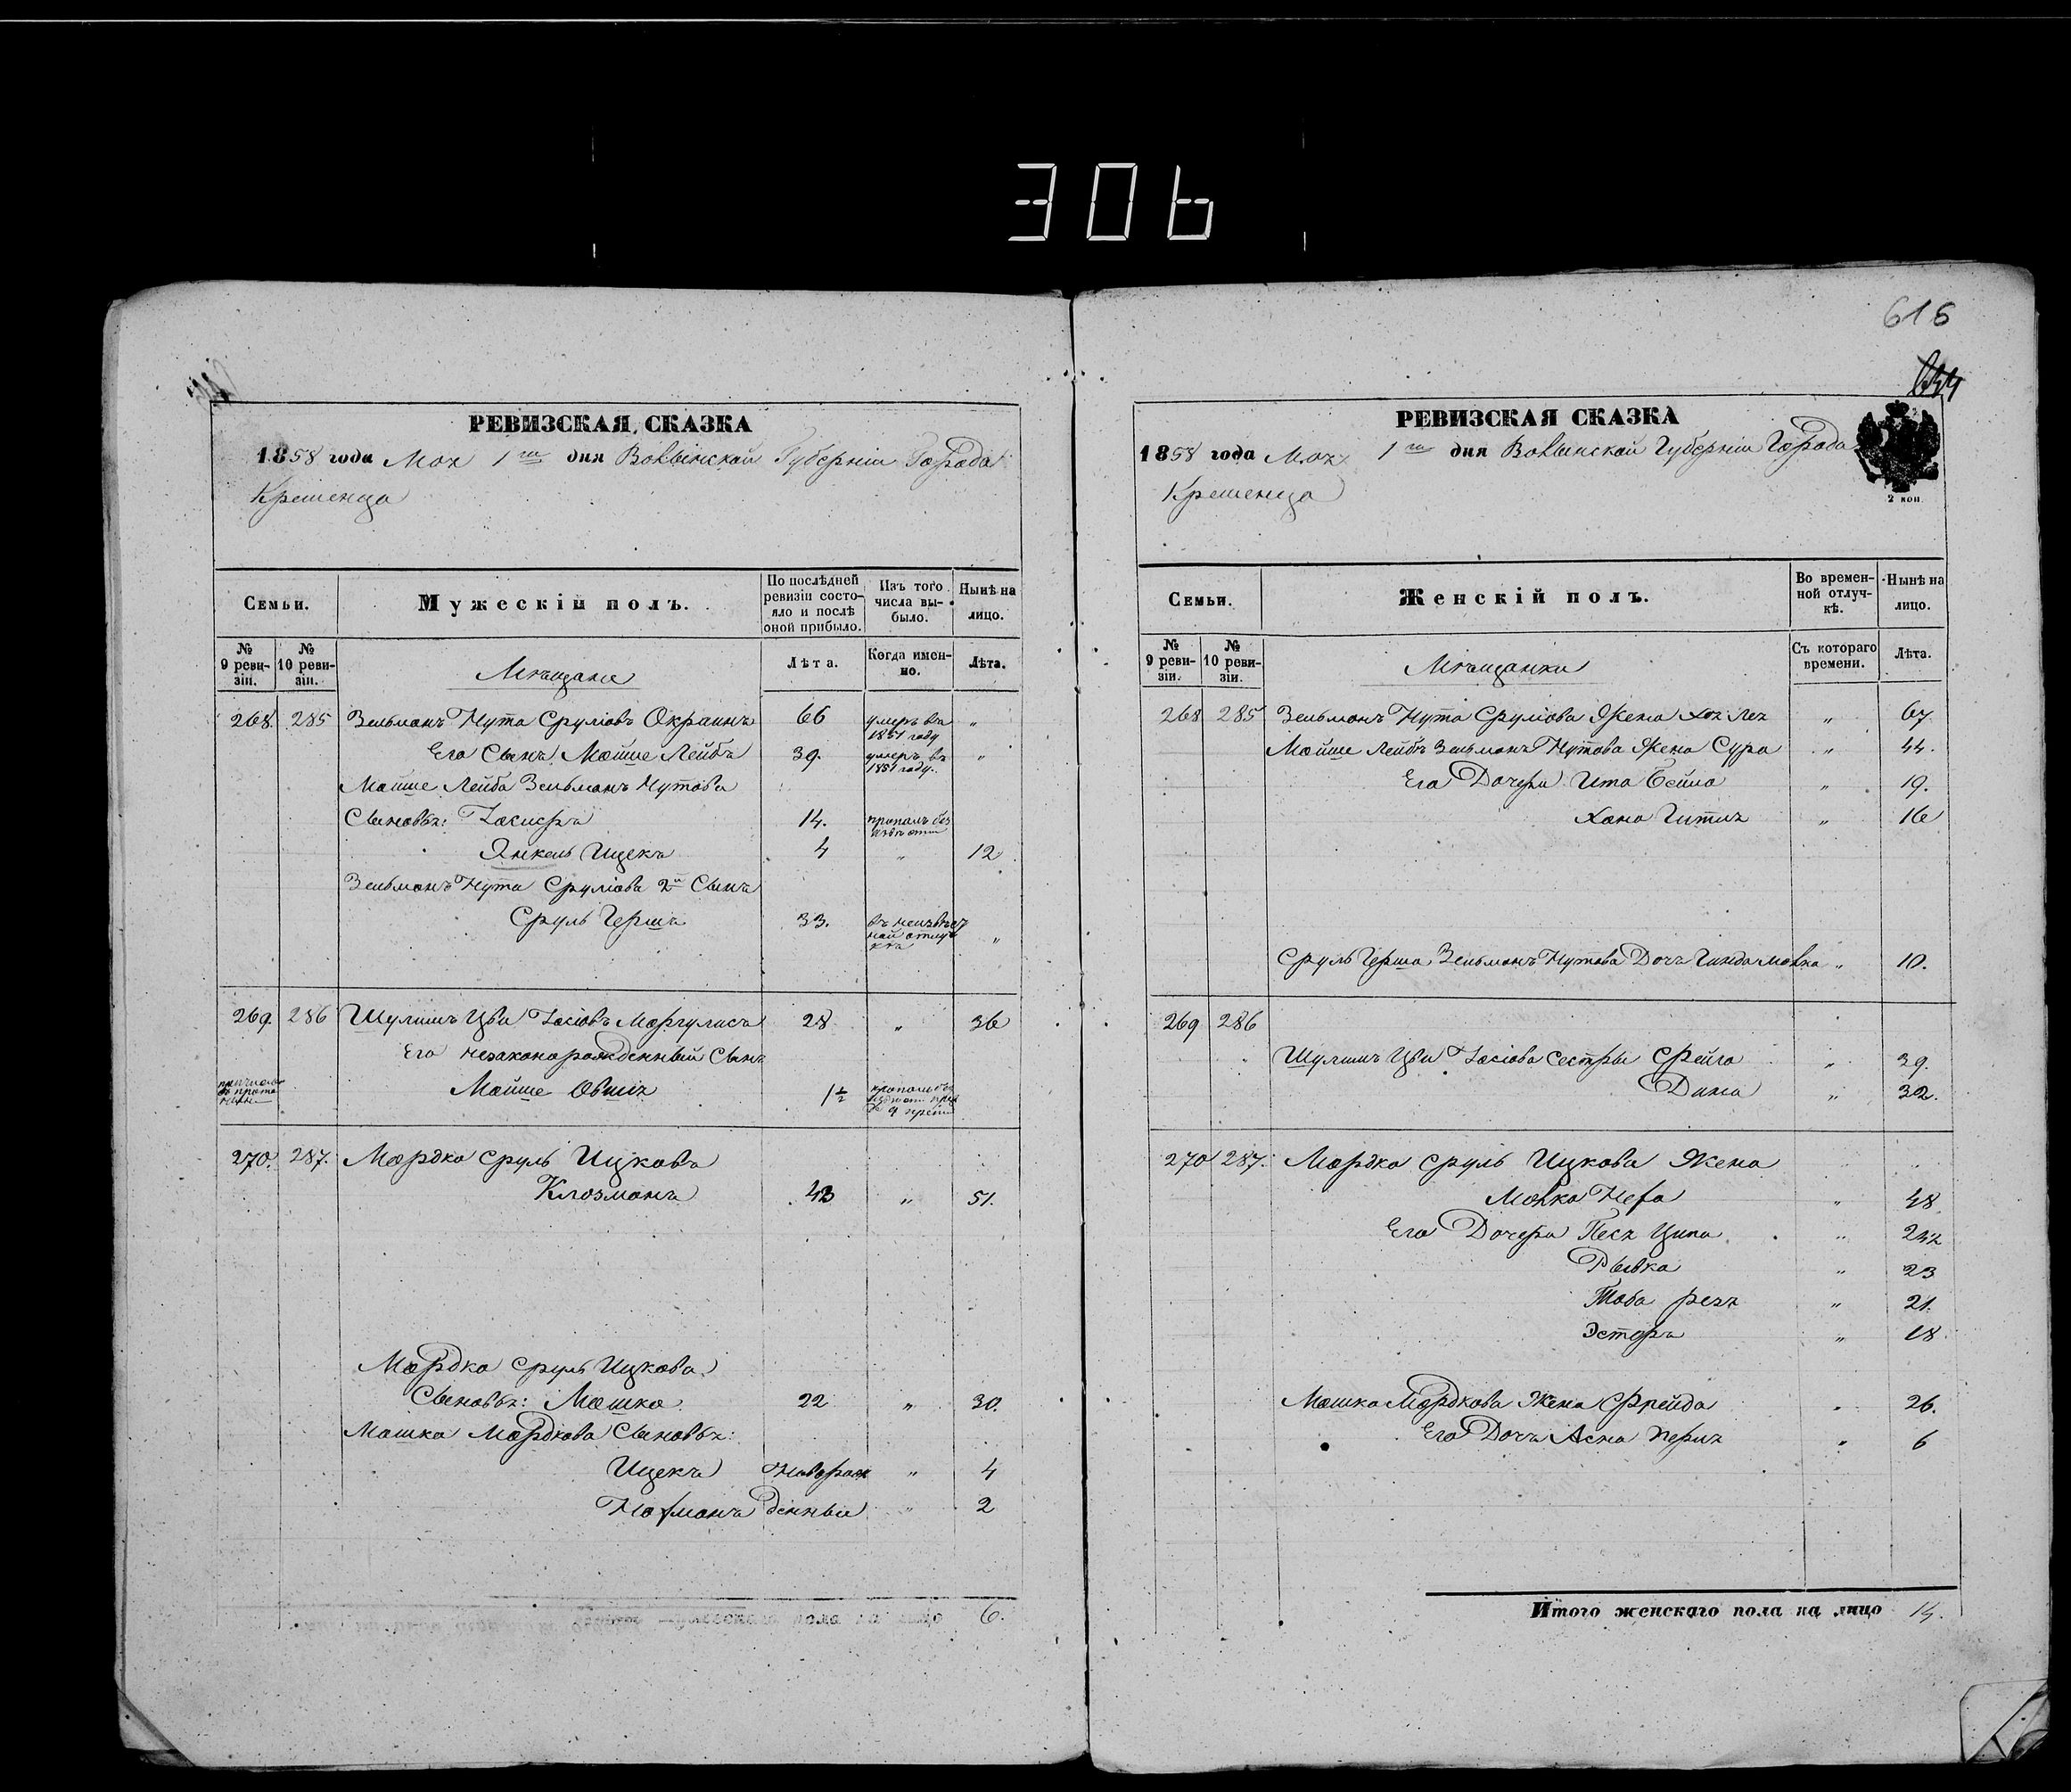 306
616
РЕВИЗСКАЯ СКАЗКА
1858 года Мая 1го дня Волынской Губерніи Города
Кременца
Семьи.
Мужескій полъ.
По послѣдней ревизіи состояло и послѣ оной прибыло.
Изъ того числа выбыло.
Нынѣ на лицо.
№ 9 ревизіи.
№ 10 ревизіи.
Мѣщане
Лѣта.
Когда именно.
Лѣта.
268. 285 Зельманъ Нута Сруліовъ Окраинъ 66 умеръ въ 1851 году "
Его Сынъ Мойше Лейбъ 39. умеръ въ 1851 году. "
Мойше Лейба Зельманъ Нутова
Сыновья: Іосифъ 14. пропалъ без
Янкель Ицекъ 4 " 12
Зельманъ Нута Сруліова 2й Сынъ
Сруль Герша 33. въ неизвѣстной отлучкѣ "
269. 286 Шулимъ Цви Іосіовъ Маргулисъ 28 " 36
Его незаконорожденный Сынъ
Мойше Овшія 1½
270. 287. Мордко Сруль Ицковъ
Клозманъ 43 " 51.
Мордко Сруль Ицкова
Сыновья: Мошко 22 " 30.
Мошка Мордкова Сыновья:
Ицекъ Новорож " 4
Нахманъ денныи " 2
мужескаго пола на лицо 6.
РЕВИЗСКАЯ СКАЗКА
1858 года Мая 1го дня Волынской Губерніи Города
Кременца
2 коп
Семьи.
Женскій полъ.
Во временной отлучкѣ.
Нынѣ на лицо.
№ 9 ревизіи.
№ 10 ревизіи.
Мѣщанки
Съ котораго времени.
Лѣта.
268 285 Зельманъ Нута Сруліова Жена Хая Лея " 67
Мойше Лейбъ Зельманъ Нутова Жена Сура " 44.
Его Дочери Ита Бейла " 19.
Хана Гитля " 16
Сруль Герша Зельманъ Нутова Дочь Гинда Малка " 10.
269 286
Шулимъ Цви Іосіова сестры Фрейга " 39.
Дина " 32.
270 287. Мордко Сруль Ицкова Жена
Малка Неха " 48
Его Дочери Песя Ципа " 24½
Рывка " 23
Тоба реза " 21.
Эстеръ " 18
Мошка Мордкова Жена Фрейда " 26.
Его Дочь Асна Перля " 6
Итого женскаго пола на лицо 14.